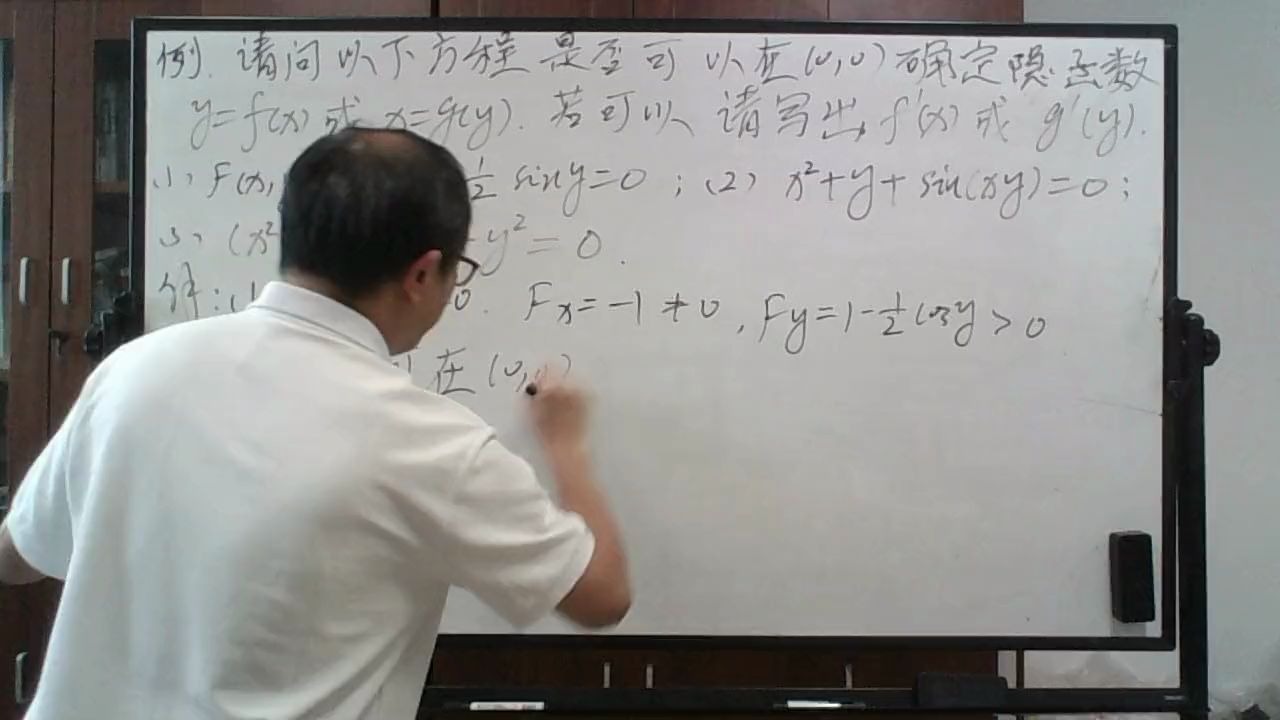 例. 请问以下方程是否可以在(0,0)确定隐函数
y=f(x)或 x=g(y). 若可以 请写出 f'(x) 或 g'(y).
(1) F(x, ½ sin y=0 ; (2) x²+y+sin(xy)=0 ;
(3) (x² y²=0.
解:(1 0. Fx=-1≠0, Fy=1-½cosy>0
在(0,0)